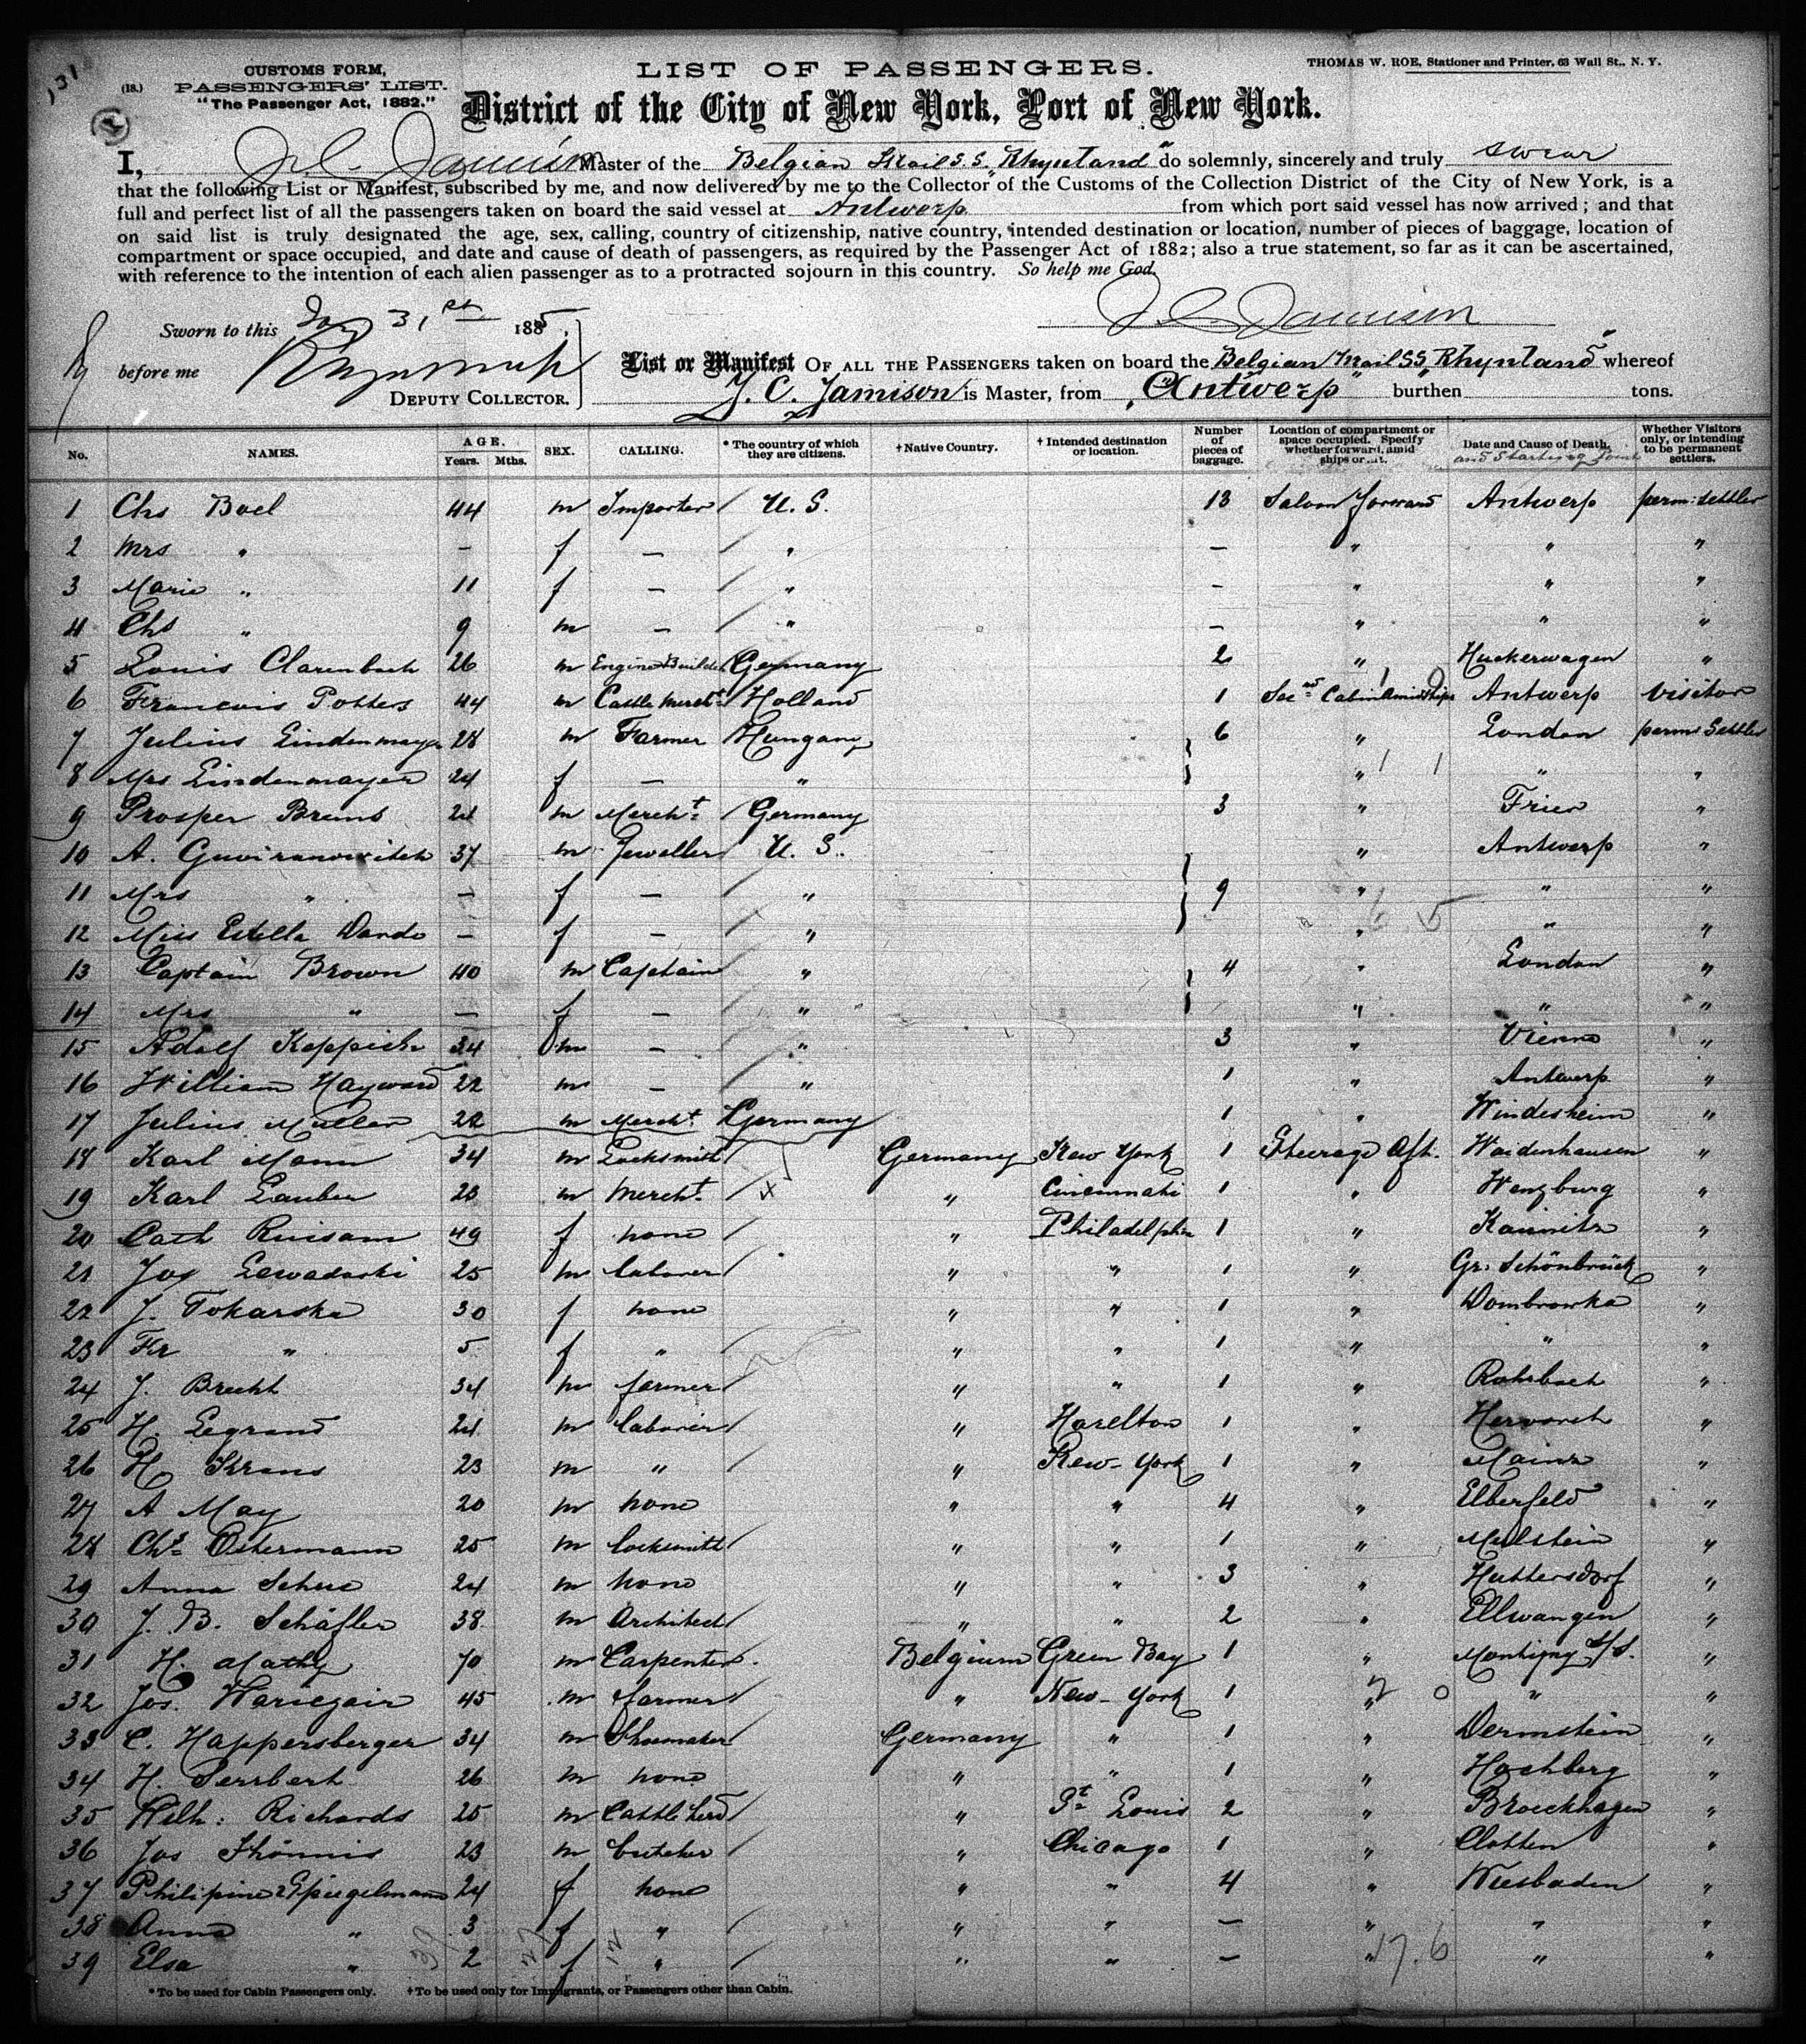 131
CUSTOMS FORM,
(18.) PASSENGERS' LIST.
"The Passenger Act, 1882."
LIST OF PASSENGERS.
THOMAS W. ROE, Stationer and Printer, 63 Wall St., N. Y.
District of the City of New York, Port of New York.
I, J. C. Jamison Master of the Belgian Mail S.S. "Rhynland" do solemnly, sincerely and truly swear
that the following List or Manifest, subscribed by me, and now delivered by me to the Collector of the Customs of the Collection District of the City of New York, is a
full and perfect list of all the passengers taken on board the said vessel at Antwerp from which port said vessel has now arrived; and that
on said list is truly designated the age, sex, calling, country of citizenship, native country, intended destination or location, number of pieces of baggage, location of
compartment or space occupied, and date and cause of death of passengers, as required by the Passenger Act of 1882; also a true statement, so far as it can be ascertained,
with reference to the intention of each alien passenger as to a protracted sojourn in this country. So help me God.
J. C. Jamison
Sworn to this 31st 1885.
before me
DEPUTY COLLECTOR.
List or Manifest OF ALL THE PASSENGERS taken on board the Belgian Mail SS "Rhynland" whereof
J. C. Jamison is Master, from "Antwerp" burthen tons.
No. NAMES. AGE. Years. Mths. SEX. CALLING. * The country of which they are citizens. † Native Country. † Intended destination or location. Number of pieces of baggage. Location of compartment or space occupied. Specify whether forward, amid ships or aft. Date and Cause of Death. and Starting Point Whether Visitors only, or intending to be permanent settlers.
1 Chs Boel 44 m Importer U.S. 13 Saloon forward Antwerp perm: settler
2 Mrs " – f – " – " " "
3 Marie " 11 f – " – " " "
4 Chs " 9 m – " – " " "
5 Louis Clarenbach 26 m Engine Builder Germany 2 " Huckerwagen "
6 Francois Potters 44 m Cattle Mercht Holland 1 Secnd Cabin Amidships Antwerp Visitor
7 Julius Lindenmayer 28 m Farmer Hungary 6 " London perm Settler
8 Mrs Lindenmayer 24 f – " " " "
9 Prosper Brems 21 m Mercht Germany 3 " Trier "
10 A. 37 m Jeweller U.S. " Antwerp "
11 Mrs " – f – " 9 " " "
12 Miss Estella Dando – f – " " " "
13 Captain Brown 40 m Captain " 4 " London "
14 Mrs " – f – " " " "
15 Adolf Koppich 34 m – " 3 " Vienna "
16 William Hayward 22 m – " 1 " Antwerp "
17 Julius Muller 22 m Mercht Germany 1 " Windesheim "
18 Karl Mann 34 m Locksmith Germany New York 1 Steerage Aft. Waidenhausen "
19 Karl Lauber 23 m Mercht " Cincinnati 1 " "
20 Cath 49 f none " Philadelphia 1 " "
21 Jos Lewadoski 25 m laborer " " 1 " Gr: Schönbrück "
22 J. Tokarska 30 f none " " 1 " Dombrowka "
23 Fr " 5 f " " " 1 " " "
24 J. Brecht 34 m farmer " " 1 " Rohrbach "
25 H. Legrand 21 m laborer " Hazelton 1 " "
26 H. Krans 23 m " " New-York 1 " Mainz "
27 A May 20 m none " " 4 " Elberfeld "
28 Chs Ostermann 25 m locksmith " " 1 " Mulstein "
29 Anna 24 m none " " 3 " Huttersdorf "
30 J. B. Schäfler 38 m Architect " " 2 " Ellwangen "
31 H. Mathy 70 m Carpenter Belgium Green Bay 1 " Montigny s/S. "
32 Jos. 45 m farmer " New-York 1 " " "
33 C. Happersberger 34 m Shoemaker Germany " 1 " Dermstein "
34 H. Serrbert 26 m none " " 1 " Hochberg "
35 Wilh: Richards 25 m Cattle herd " St Louis 2 " Broeckhagen "
36 Jos Thönnis 23 m butcher " Chicago 1 " Clotten "
37 Philipine Spiegelmann 24 f none " " 4 " Wiesbaden "
38 Anna " 3 f " " " – " " "
39 Elsa " 2 f " " " – " " "
39 27 12 17.6
* To be used for Cabin Passengers only. † To be used only for Immigrants, or Passengers other than Cabin.